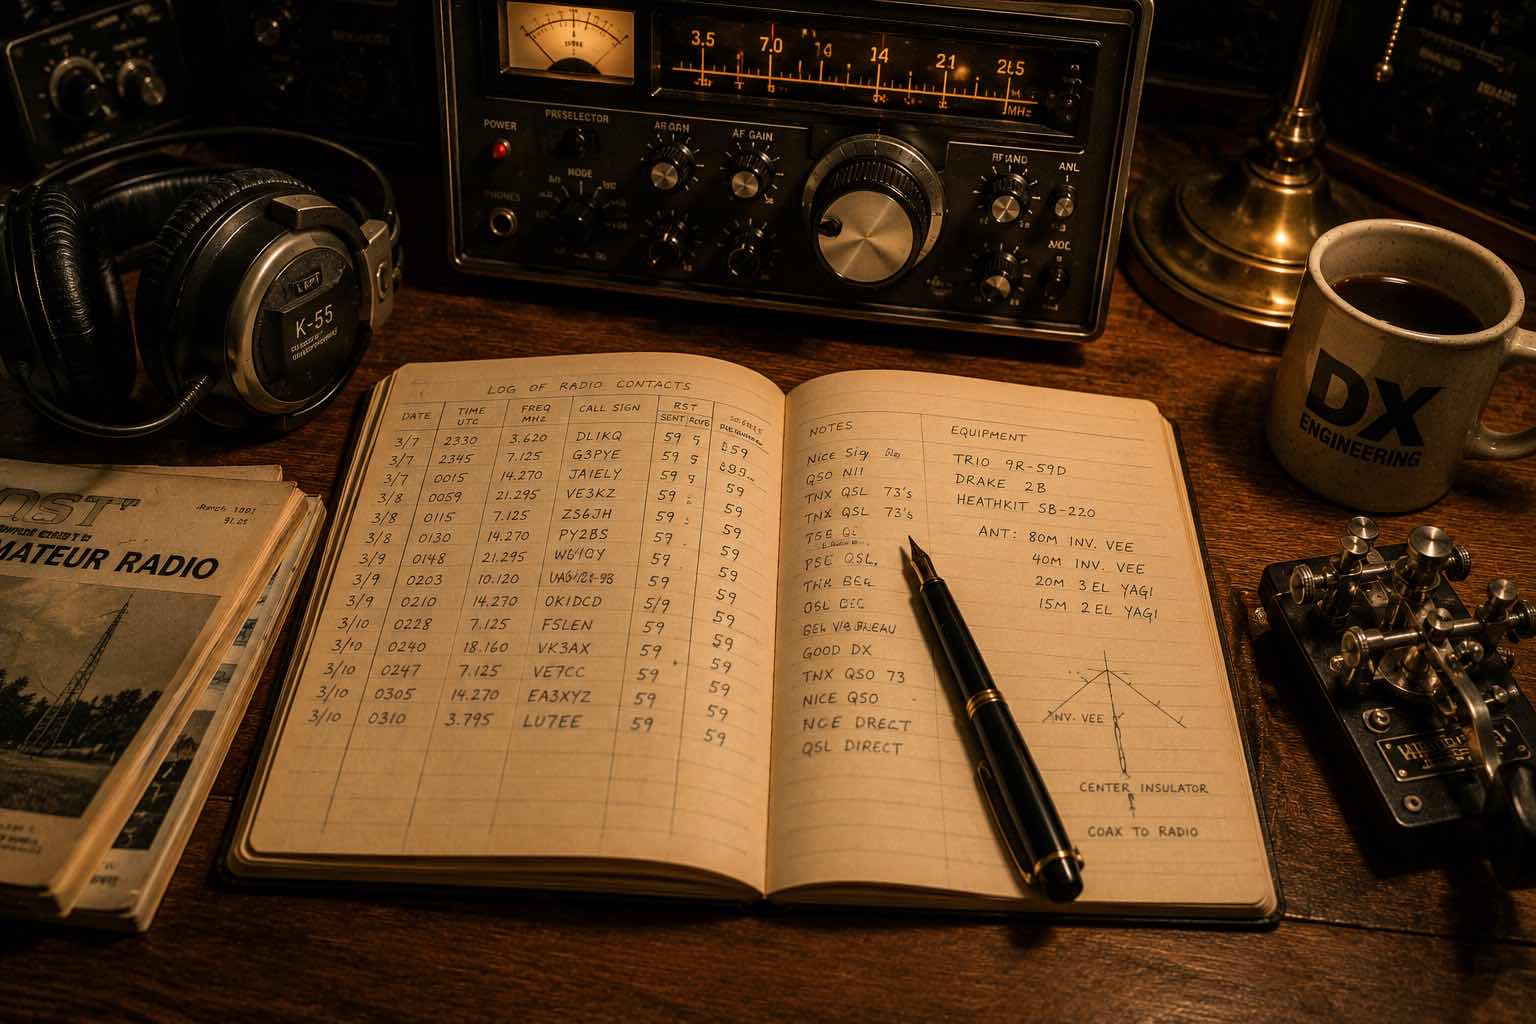 3.5 7.0 14 14 21
MHz
POWER
PRESELECTOR
AF GAIN
ANL
MODE
PHONES
K-55
DX
ENGINEERING
QST
AMATEUR RADIO
LOG OF RADIO CONTACTS
DATE TIME UTC FREQ MHZ CALL SIGN RST
SENT
3/7 2330 3.620 DL1KQ 59 5
3/7 2345 7.125 G3PYE 59 5
3/7 0015 14.270 JA1ELY 59
3/8 0059 21.295 VE3KZ 59 59
3/8 0115 7.125 ZS6JH 59 59
3/8 0130 14.270 PY2BS 59 59
3/9 0148 21.295 59 59
3/9 0203 10.120 59 59
3/9 0210 14.270 OK1DCD 5/9 59
3/10 0228 7.125 F5LEN 59 59
3/10 0240 18.160 VK3AX 59 59
3/10 0247 7.125 VE7CC 59 59
3/10 0305 14.270 EA3XYZ 59 59
3/10 0310 3.795 LU7EE 59 59
59
NOTES
NICE SIG
QSO NII
TNX QSL 73's
TNX QSL 73's
PSE QSL.
GOOD DX
TNX QSO 73
NICE QSO
NCE DRECT
QSL DIRECT
EQUIPMENT
TRIO 9R-59D
DRAKE 2B
HEATHKIT SB-220
ANT: 80M INV. VEE
40M INV. VEE
20M 3 EL YAGI
15M 2 EL YAGI
INV. VEE
CENTER INSULATOR
COAX TO RADIO